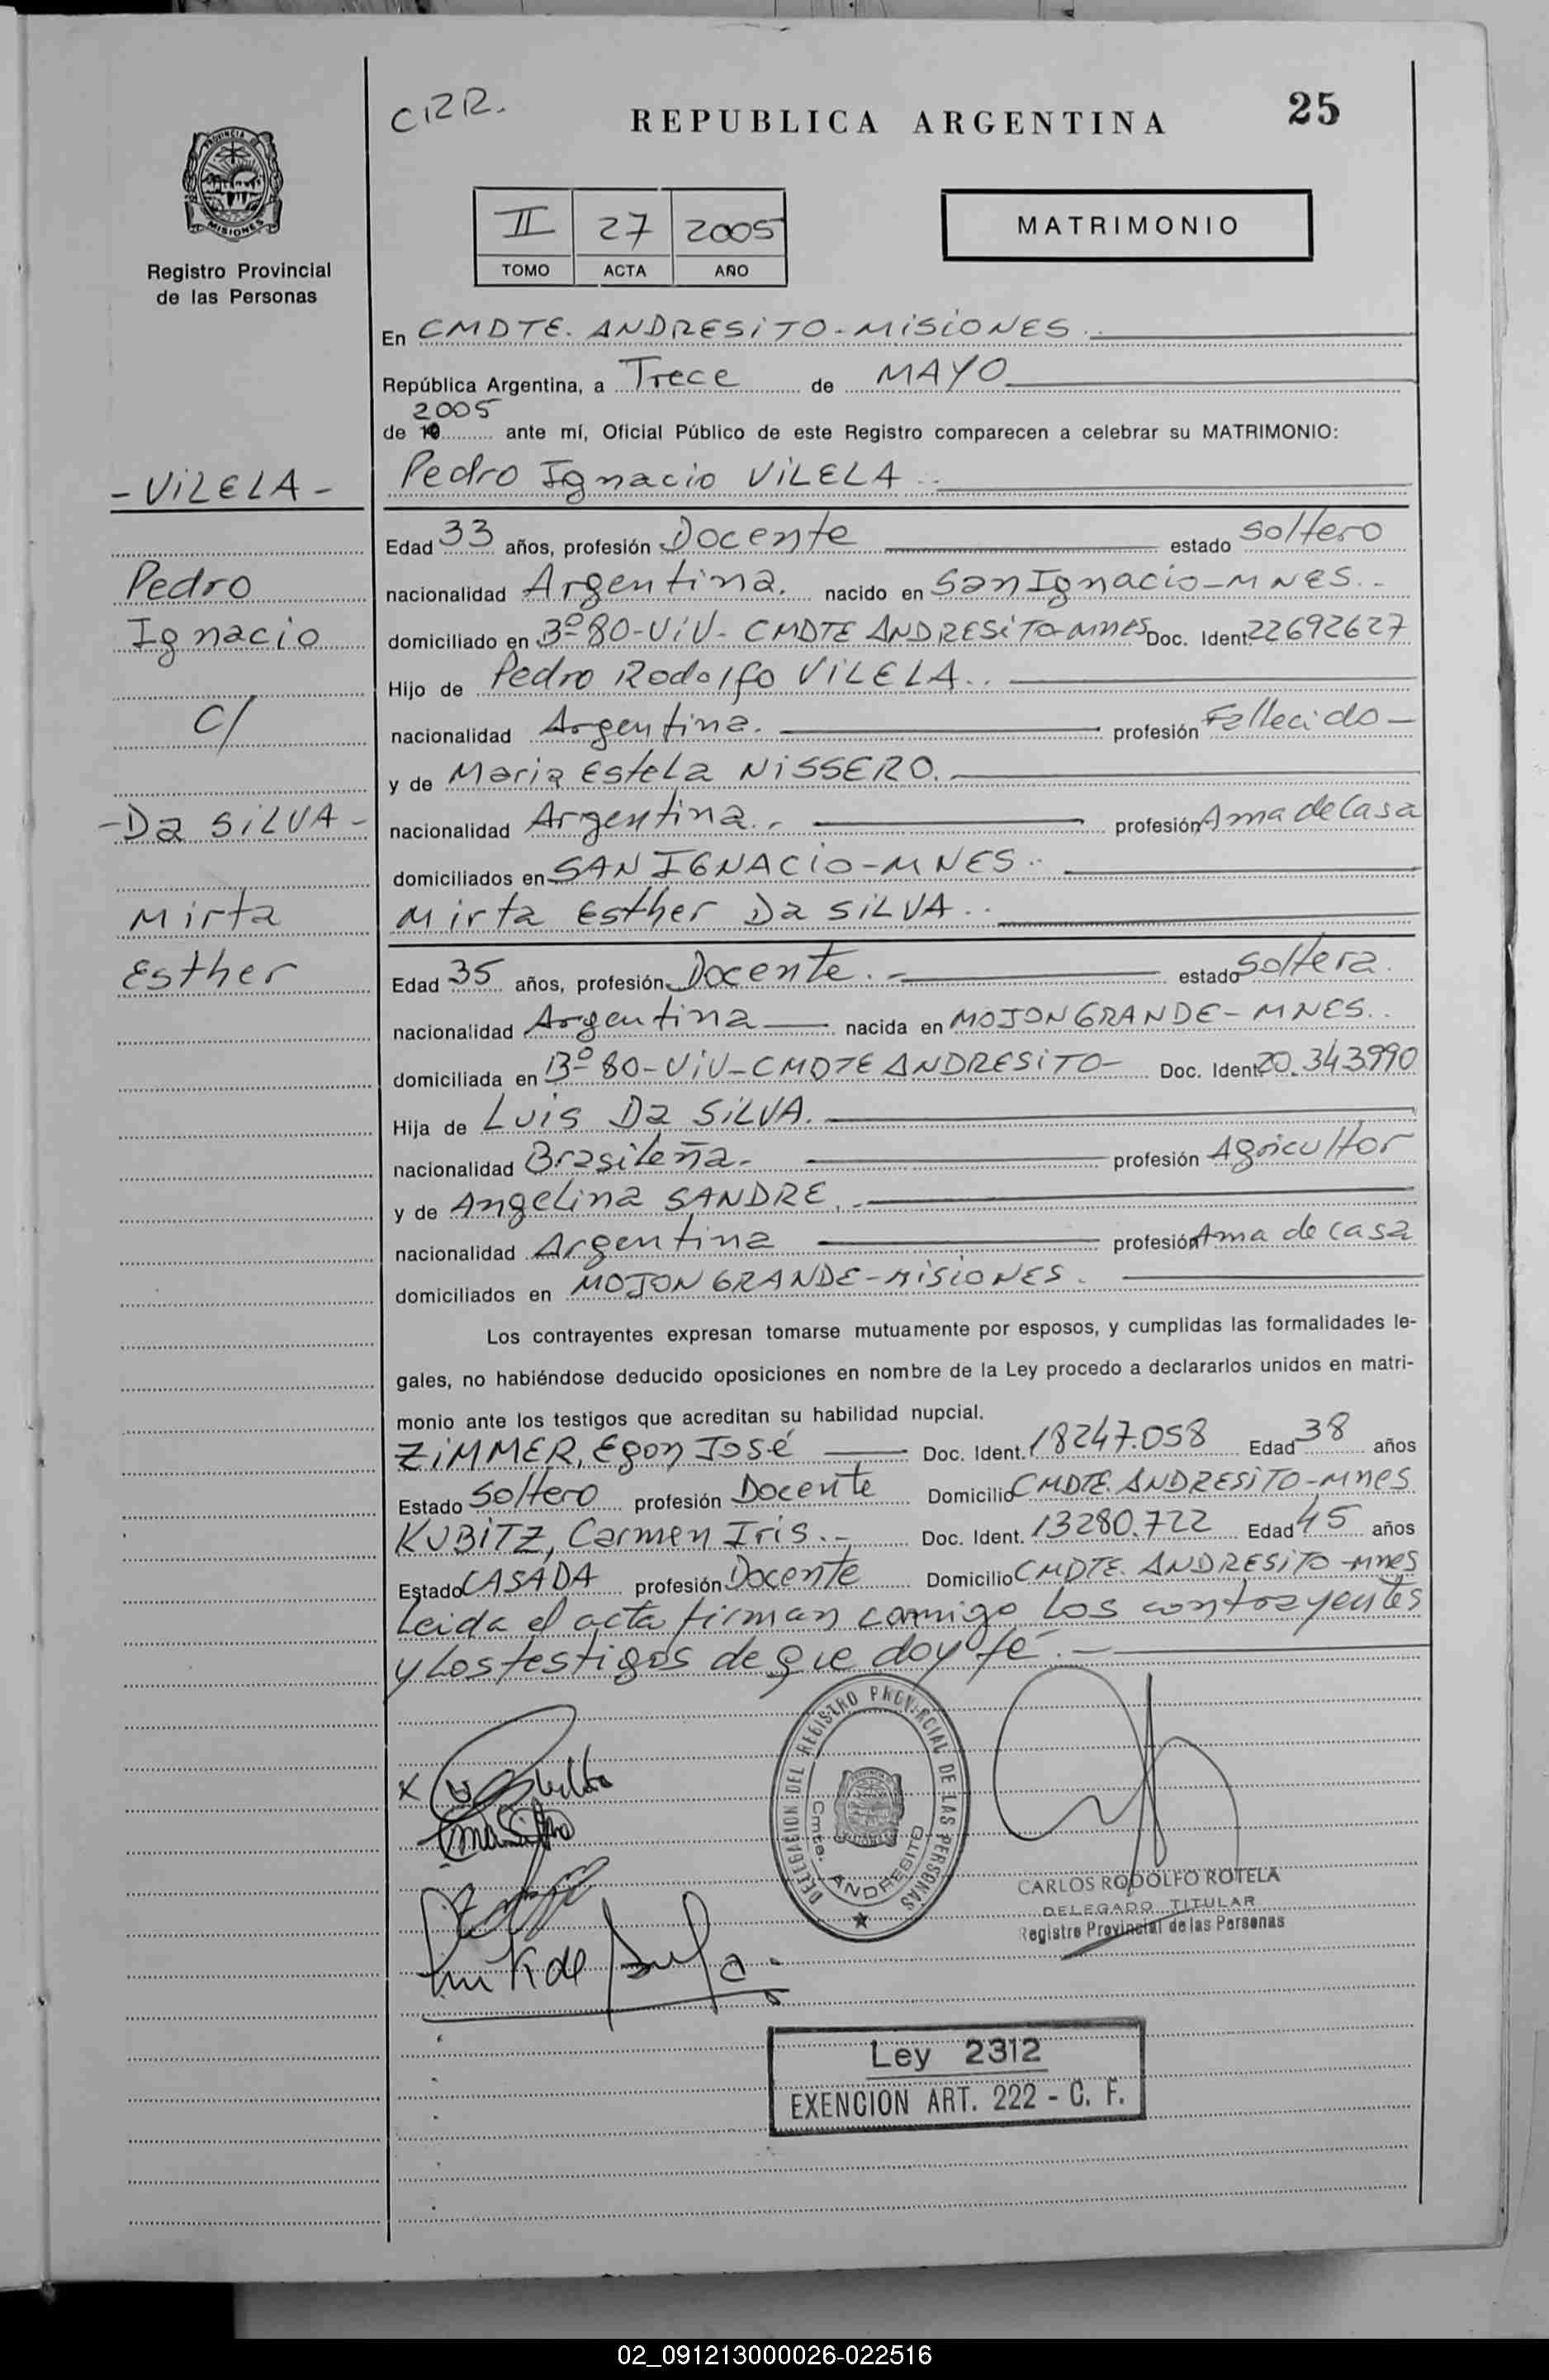 CRR.
REPUBLICA ARGENTINA
25
PROVINCIA DE
MISIONES
Registro Provincial
de las Personas
II 27 2005
TOMO ACTA AÑO
MATRIMONIO
En CMDTE. ANDRESiTO-MiSiONES..
República Argentina, a Trece de MAYO
2005
de 19 ante mí, Oficial Público de este Registro comparecen a celebrar su MATRIMONIO:
-ViLELA- Pedro Ignacio ViLELA..
Edad 33 años, profesión Docente estado soltero
Pedro nacionalidad Argentina. nacido en San Ignacio-MNES..
Ignacio domiciliado en Bº80-ViV- CMDTE ANDRESiTO-MnES Doc. Ident. 22692627
Hijo de Pedro Rodolfo ViLELA..
C/ nacionalidad Argentina. profesión Fallecido-
y de Maria Estela NiSSERO.
-Da SiLVA- nacionalidad Argentina.- profesión Ama de Casa
domiciliados en SAN IGNACiO-MNES..
Mirta Mirta Esther Da SiLVA..
Esther Edad 35 años, profesión Docente.- estado soltera.
nacionalidad Argentina nacida en MOJON GRANDE-MNES..
domiciliada en Bº80-ViV-CMDTE ANDRESiTO- Doc. Ident. 20.343990
Hija de Luis Da SiLVA.
nacionalidad Brasileña. profesión Agricultor
y de Angelina SANDRE.
nacionalidad Argentina profesión Ama de casa
domiciliados en MOJON GRANDE-MiSiONES.
Los contrayentes expresan tomarse mutuamente por esposos, y cumplidas las formalidades le-
gales, no habiéndose deducido oposiciones en nombre de la Ley procedo a declararlos unidos en matri-
monio ante los testigos que acreditan su habilidad nupcial.
ZiMMER, Egon José Doc. Ident. 18247.058 Edad 38 años
Estado Soltero profesión Docente Domicilio CMDTE. ANDRESiTO-Mnes
KUBiTZ, Carmen Iris.- Doc. Ident. 13280.722 Edad 45 años
Estado CASADA profesión Docente Domicilio CMDTE. ANDRESiTO-Mnes
Leida el acta firman conmigo Los contrayentes
y Los testigos de que doy fé.-
DELEGACION DEL REGISTRO PROVINCIAL DE LAS PERSONAS
Cmte. ANDRESITO
CARLOS RODOLFO ROTELA
DELEGADO TITULAR
Registro Provincial de las Personas
Ley 2312
EXENCION ART. 222 - C. F.
02_091213000026-022516